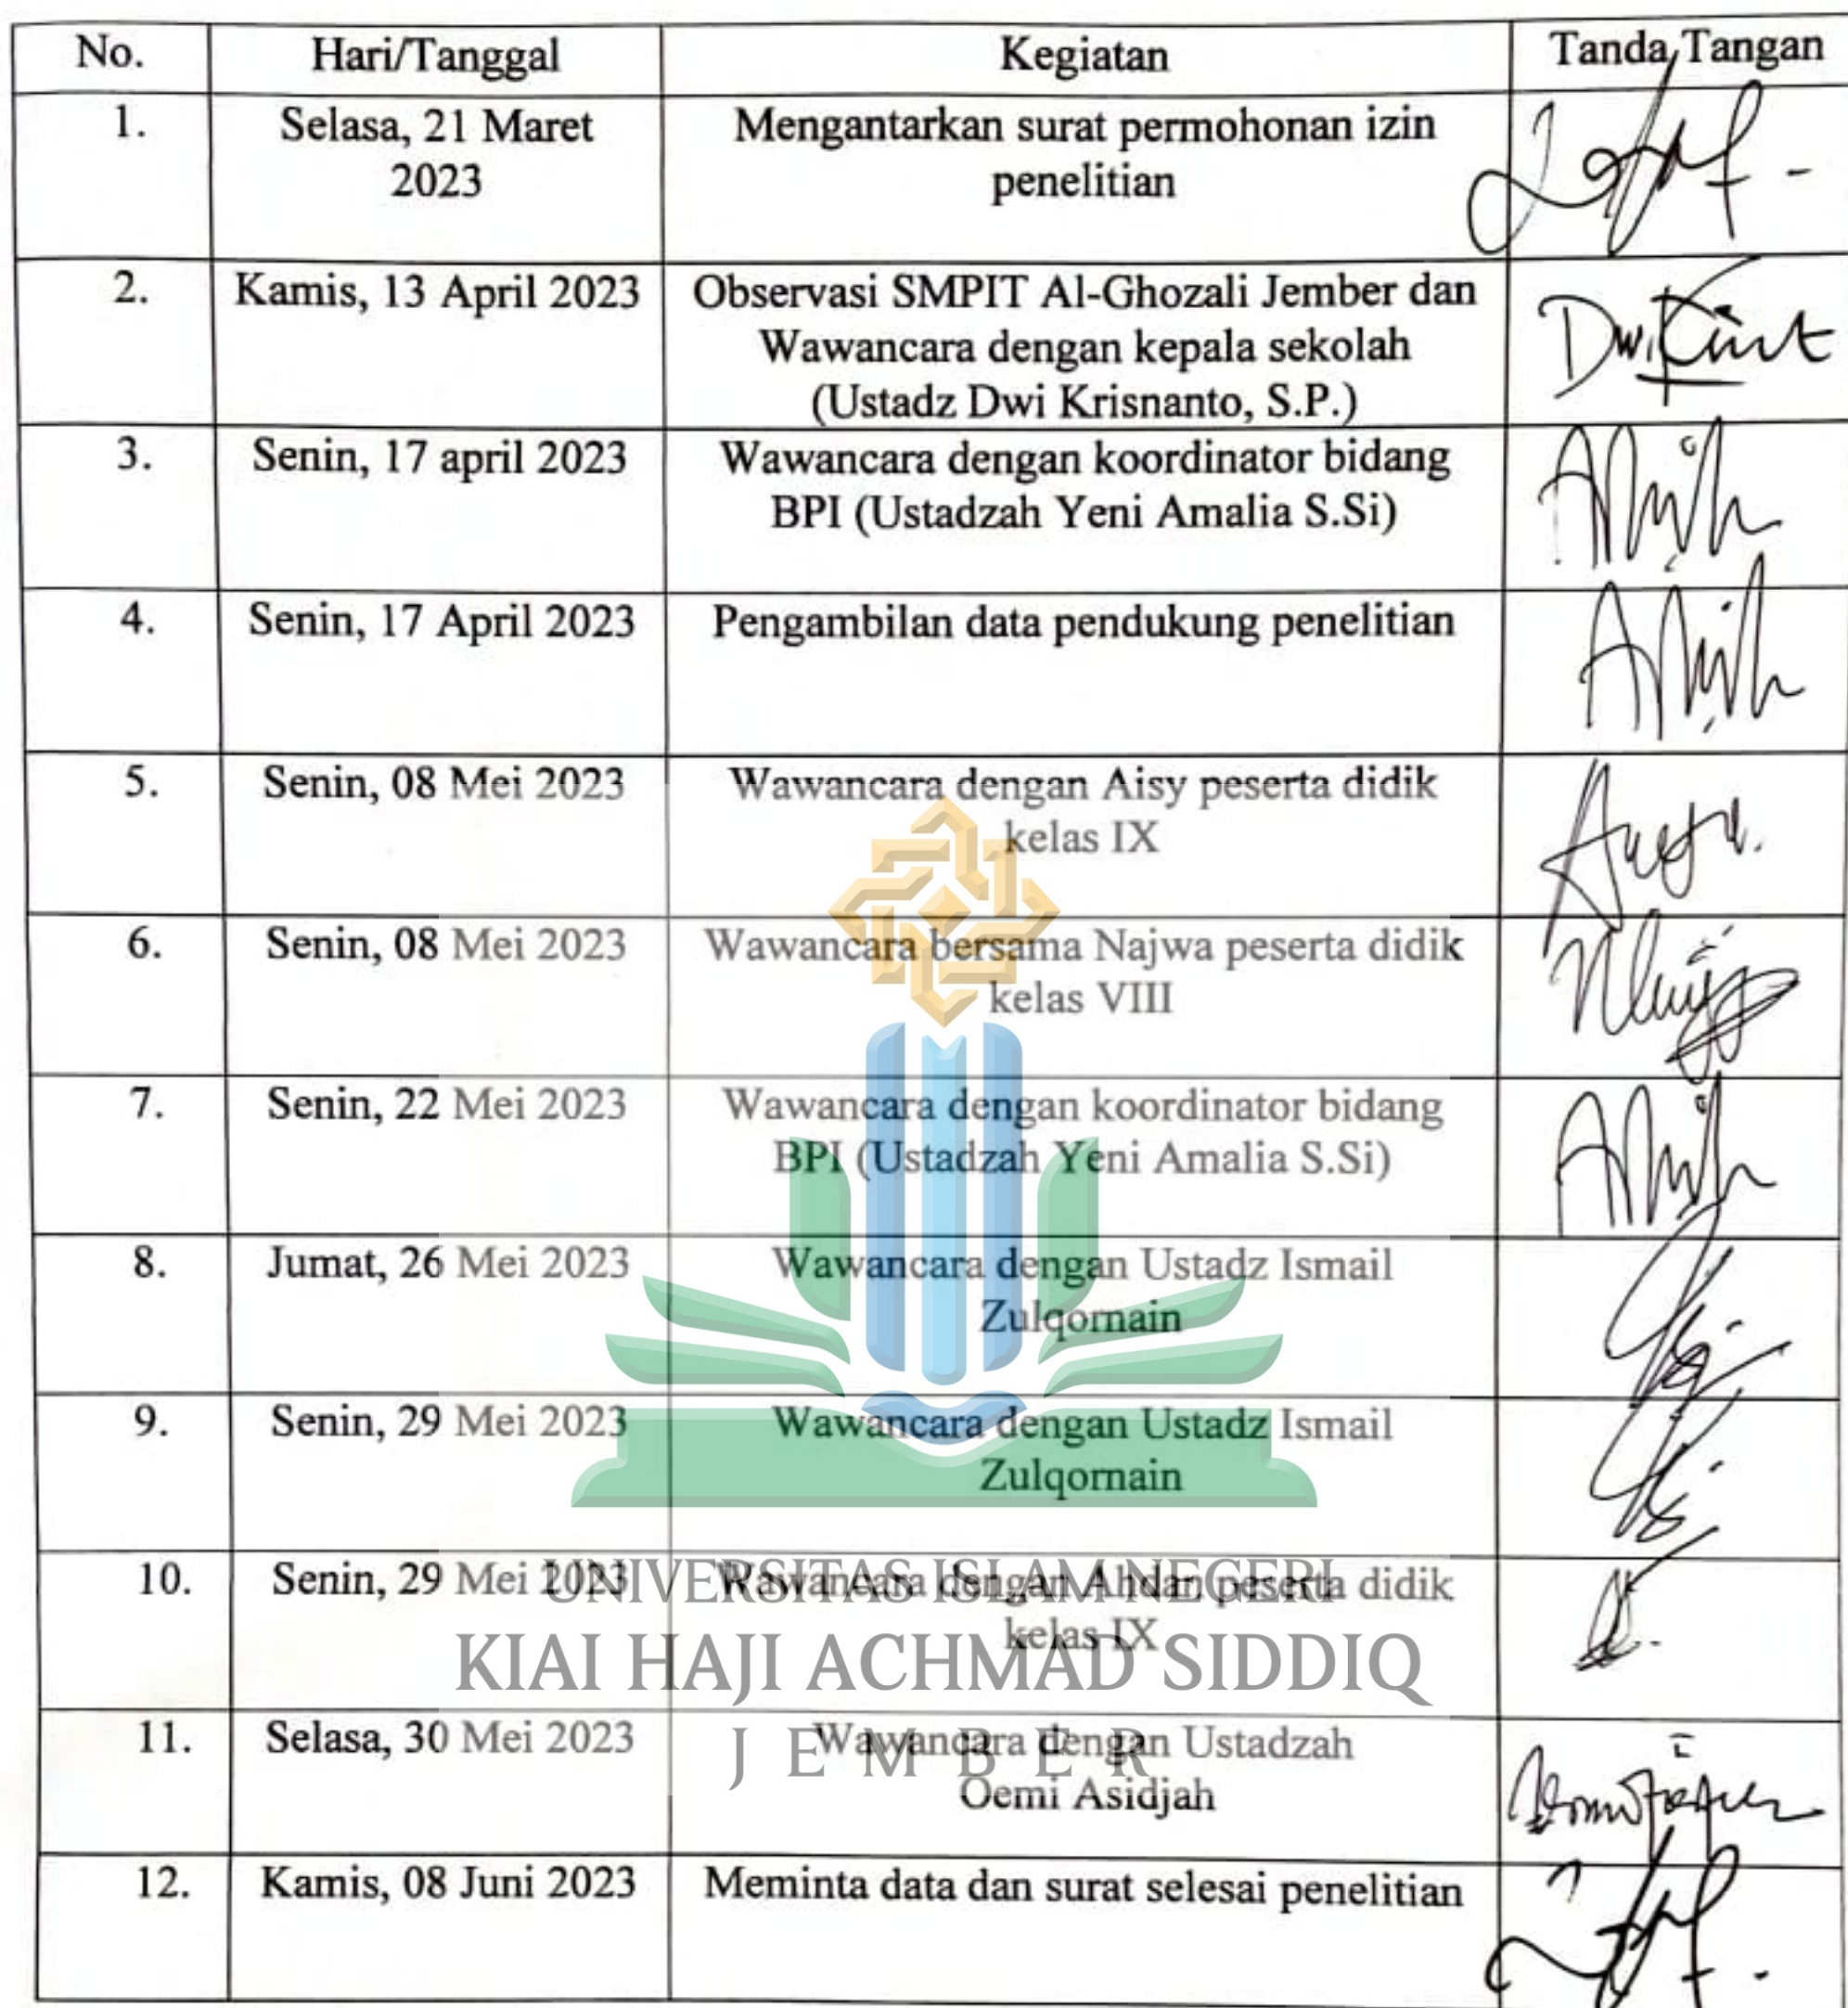 No. Hari/Tanggal Kegiatan Tanda Tangan
1. Selasa, 21 Maret Mengantarkan surat permohonan izin
2023 penelitian
2. Kamis, 13 April 2023 Observasi SMPIT Al-Ghozali Jember dan
Wawancara dengan kepala sekolah
(Ustadz Dwi Krisnanto, S.P.)
3. Senin, 17 april 2023 Wawancara dengan koordinator bidang
BPI (Ustadzah Yeni Amalia S.Si)
4. Senin, 17 April 2023 Pengambilan data pendukung penelitian
5. Senin, 08 Mei 2023 Wawancara dengan Aisy peserta didik
kelas IX
6. Senin, 08 Mei 2023 Wawancara bersama Najwa peserta didik
kelas VIII
7. Senin, 22 Mei 2023 Wawancara dengan koordinator bidang
BPI (Ustadzah Yeni Amalia S.Si)
8. Jumat, 26 Mei 2023 Wawancara dengan Ustadz Ismail
Zulqornain
9. Senin, 29 Mei 2023 Wawancara dengan Ustadz Ismail
Zulqornain
10. Senin, 29 Mei 2023 Wawancara dengan Ahdan peserta didik
kelas IX
UNIVERSITAS ISLAM NEGERI
KIAI HAJI ACHMAD SIDDIQ
JEMBER
11. Selasa, 30 Mei 2023 Wawancara dengan Ustadzah
Oemi Asidjah
12. Kamis, 08 Juni 2023 Meminta data dan surat selesai penelitian